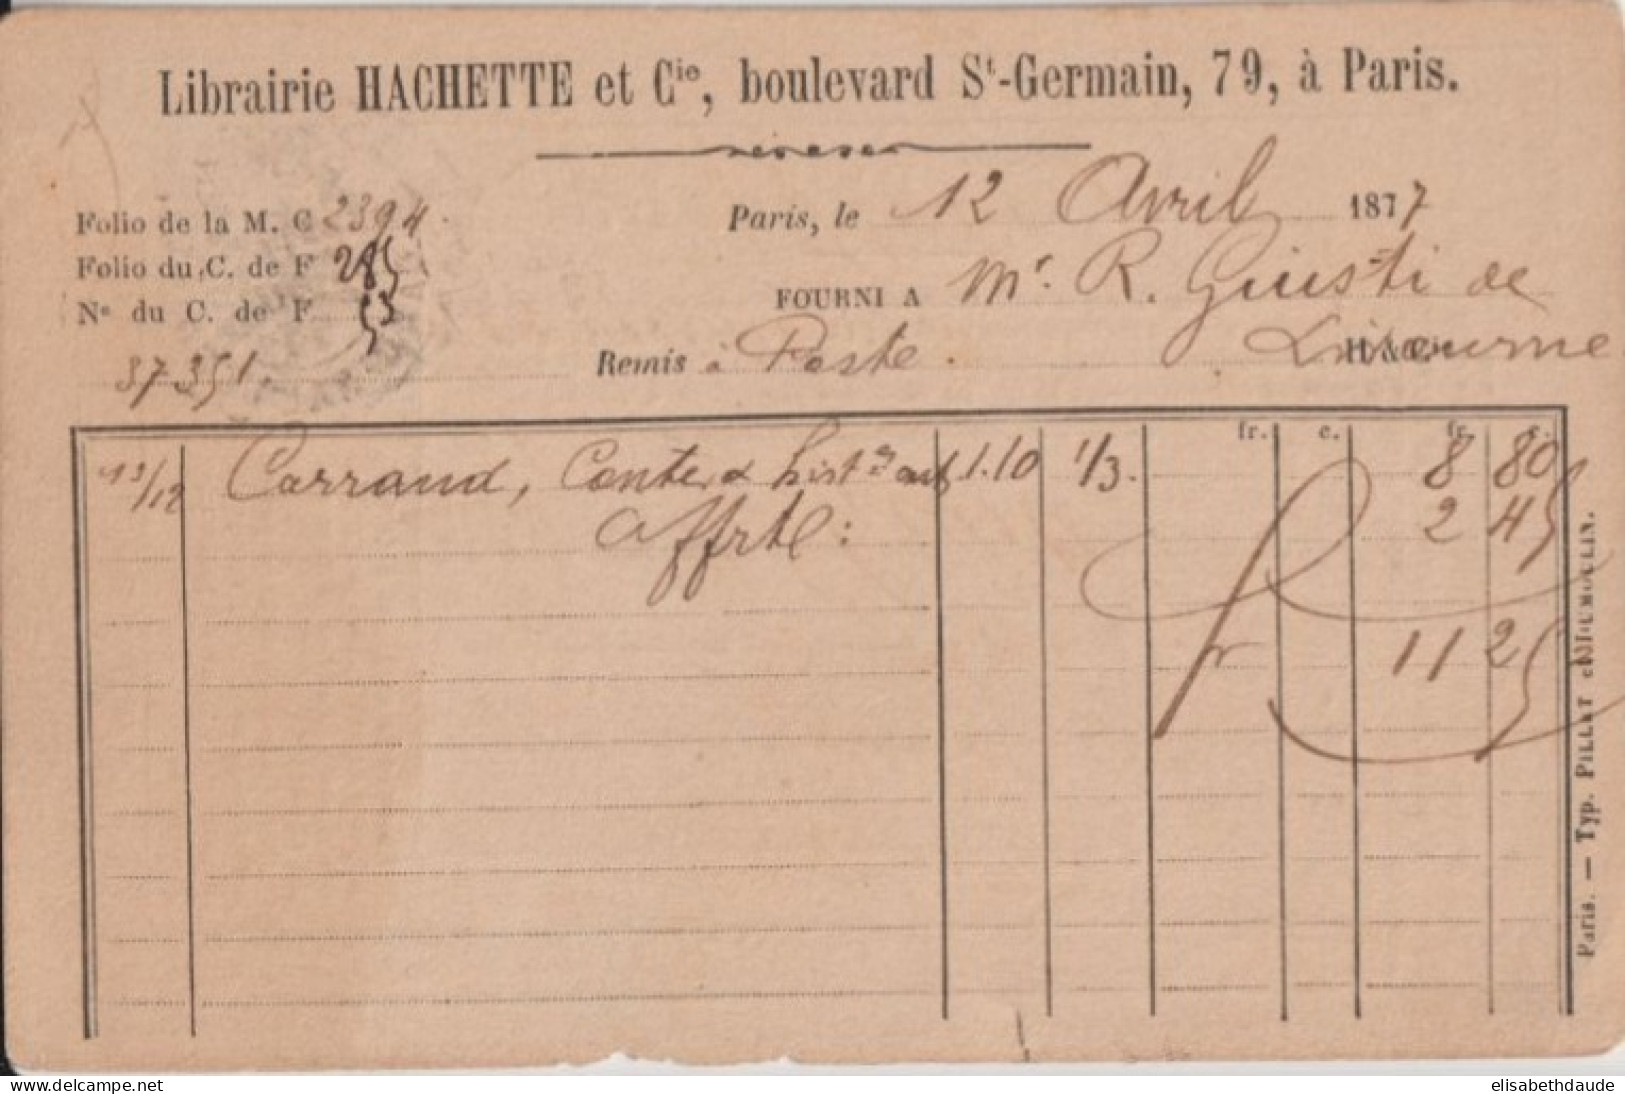 Librairie HACHETTE et Cie, boulevard St-Germain, 79, à Paris.
Folio de la M. C 2394.
Paris, le 12 Avril 1877
Folio du C. de F 285
FOURNI A Mr. R. Giusti de
No du C. de F 53
Livourne
37351.
Remis à Poste.
fr. c. fr. c.
13/12 Carraud, Contes & hist.es 1.10 1/3. 8 80
affrt: 2 45
fr 11 25
Paris. — Typ. PILLET et DUMOULIN.
elisabethdaude